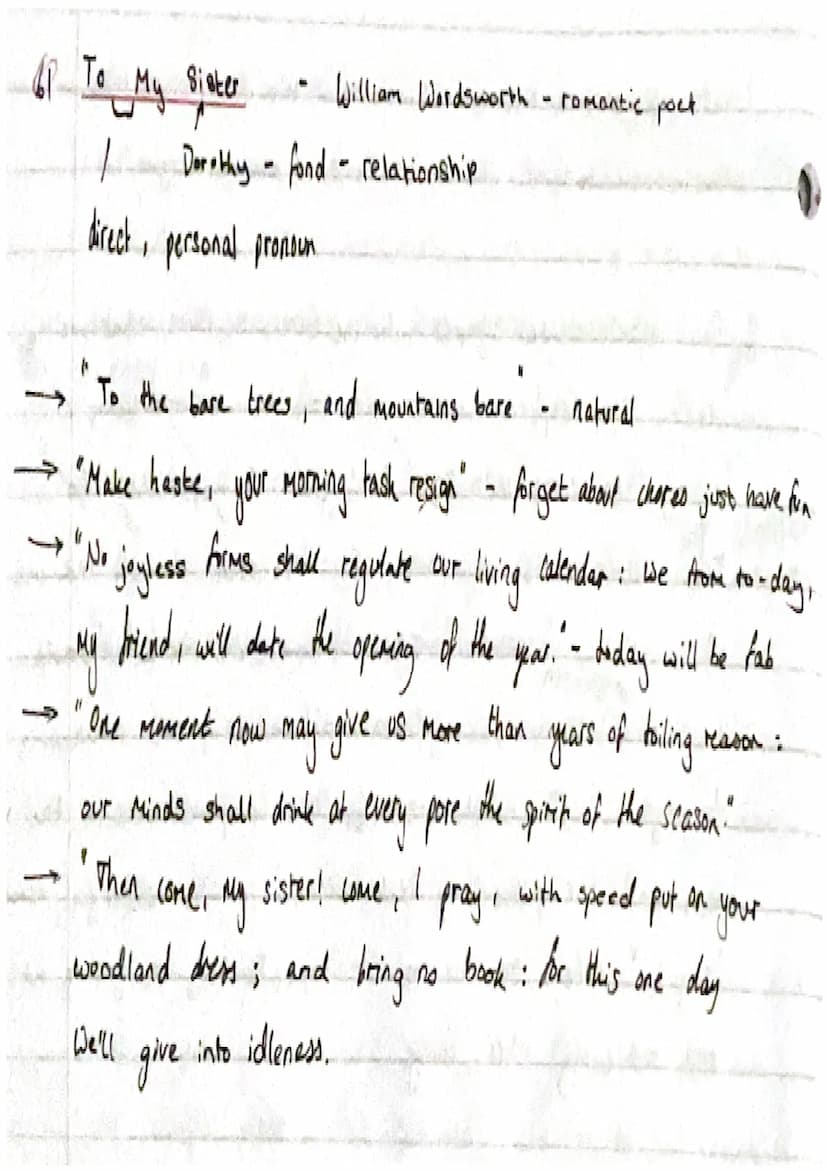 61 To My Sister - William Wordsworth - romantic poet
/ Dorothy - fond - relationship
direct, personal pronoun
→ "To the bare trees, and mountains bare" - natural
→ "Make haste, your morning task resign" - forget about chores just have fun
→ "No joyless forms shall regulate our living calendar: we from to-day,
my friend, will date the opening of the year." - today will be fab
→ "One moment now may give us more than years of toiling reason:
our minds shall drink at every pore the spirit of the season."
→ "Then come, my sister! come, I pray, with speed put on your
woodland dress; and bring no book: for this one day
We'll give into idleness.